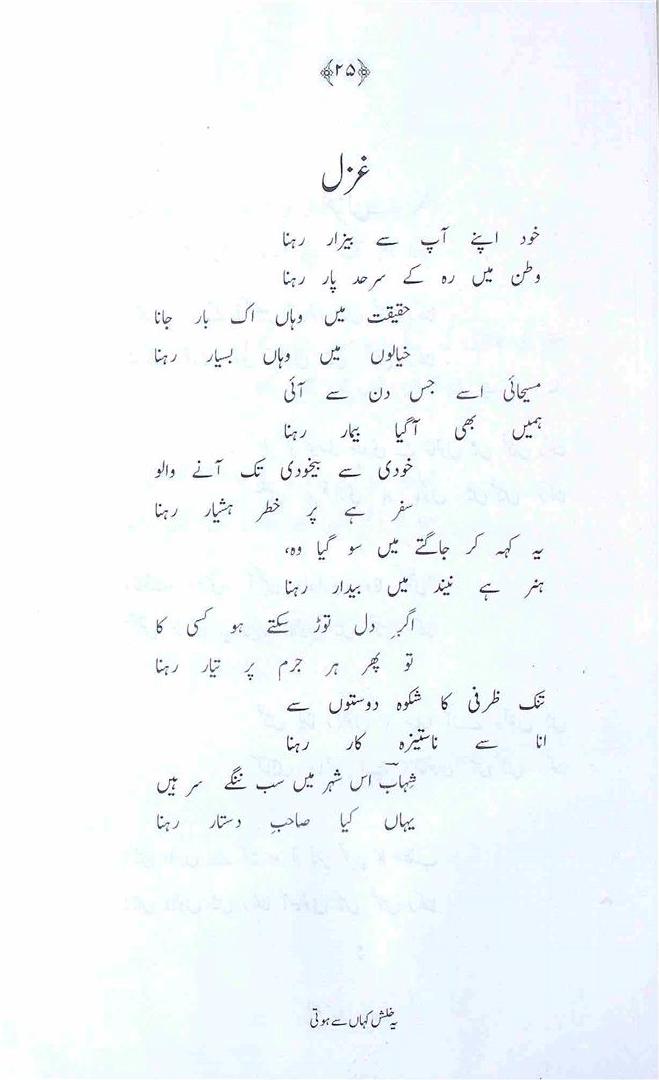 ﴿۲۵﴾
غزل
خود اپنے آپ سے بیزار رہنا
وطن میں رہ کے سرحد پار رہنا
حقیقت میں وہاں اک بار جانا
خیالوں میں وہاں بسیار رہنا
مسیحائی اسے جس دن سے آئی
ہمیں بھی آگیا بیمار رہنا
خودی سے بیخودی تک آنے والو
سفر ہے پر خطر ہشیار رہنا
یہ کہہ کر جاگتے میں سو گیا وہ،
ہنر ہے نیند میں بیدار رہنا
اگر دل توڑ سکتے ہو کسی کا
تو پھر ہر جرم پر تیار رہنا
تنک ظرفی کا شکوہ دوستوں سے
انا سے ناستیزہ کار رہنا
شہابؔ اس شہر میں سب ننگے سر ہیں
یہاں کیا صاحبِ دستار رہنا
یہ خلش کہاں سے ہوتی